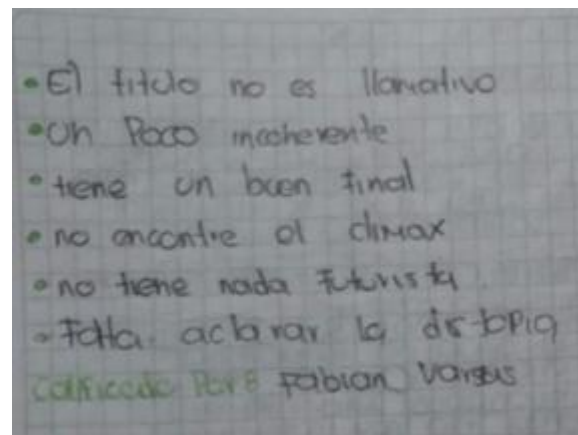 • El titulo no es llamativo
• Un Poco incoherente
• tiene un buen final
• no encontre el climax
• no tiene nada futurista
• Falta aclarar la distopia
Calificado Por: Fabian Vargas